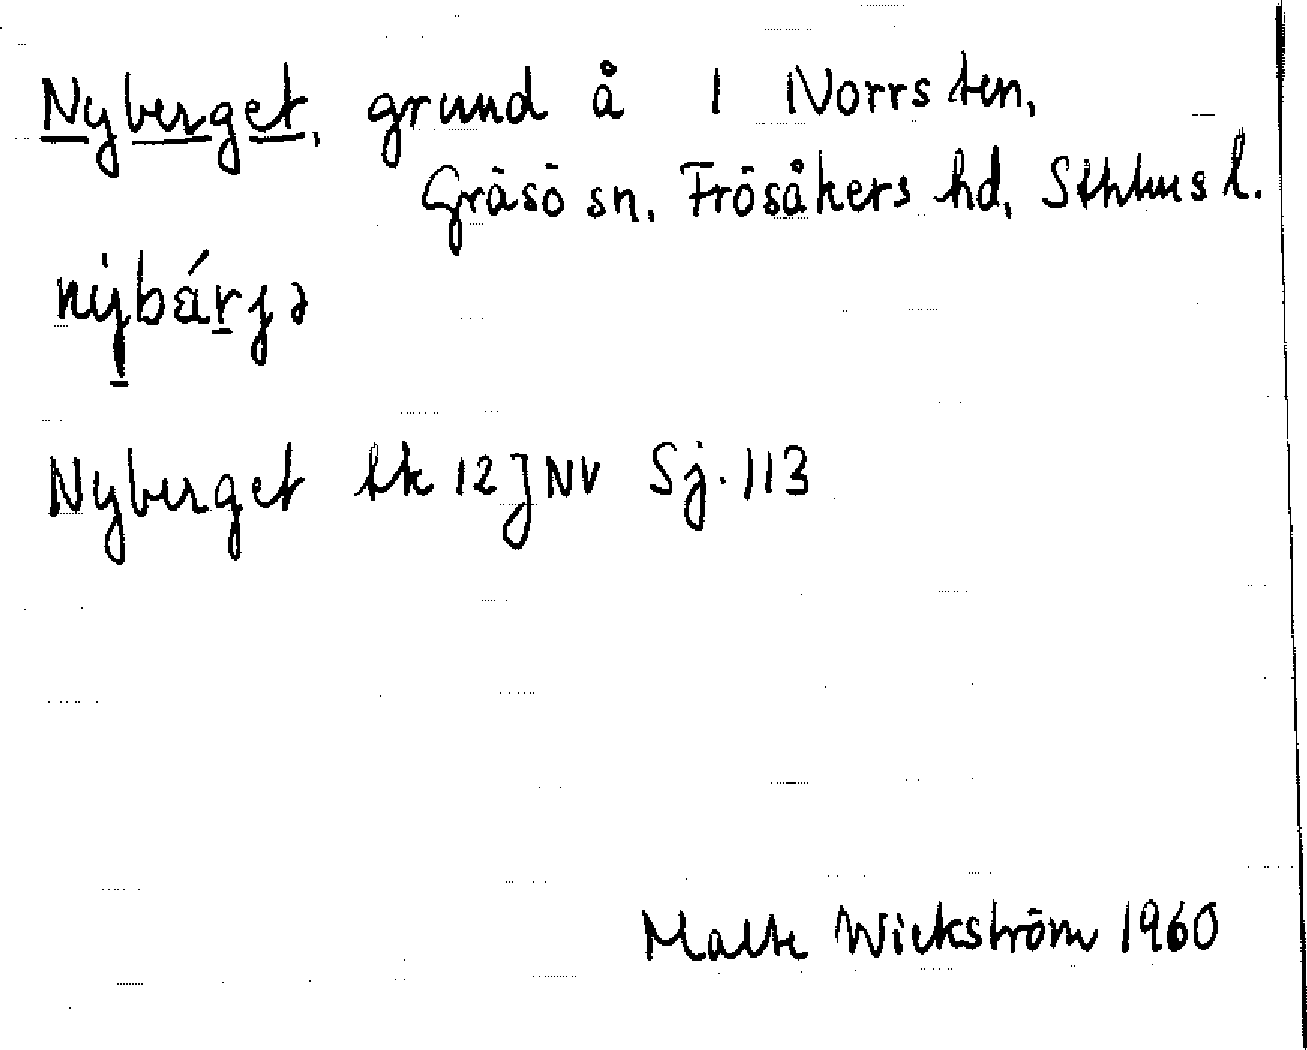 Nyberget, grund å 1 Norrsten,
Gräsö sn, Frösåkers hd, Sthlms l.
nýbárjə
Nyberget Ek 12 J NV Sj. 113
Malte Wickström 1960